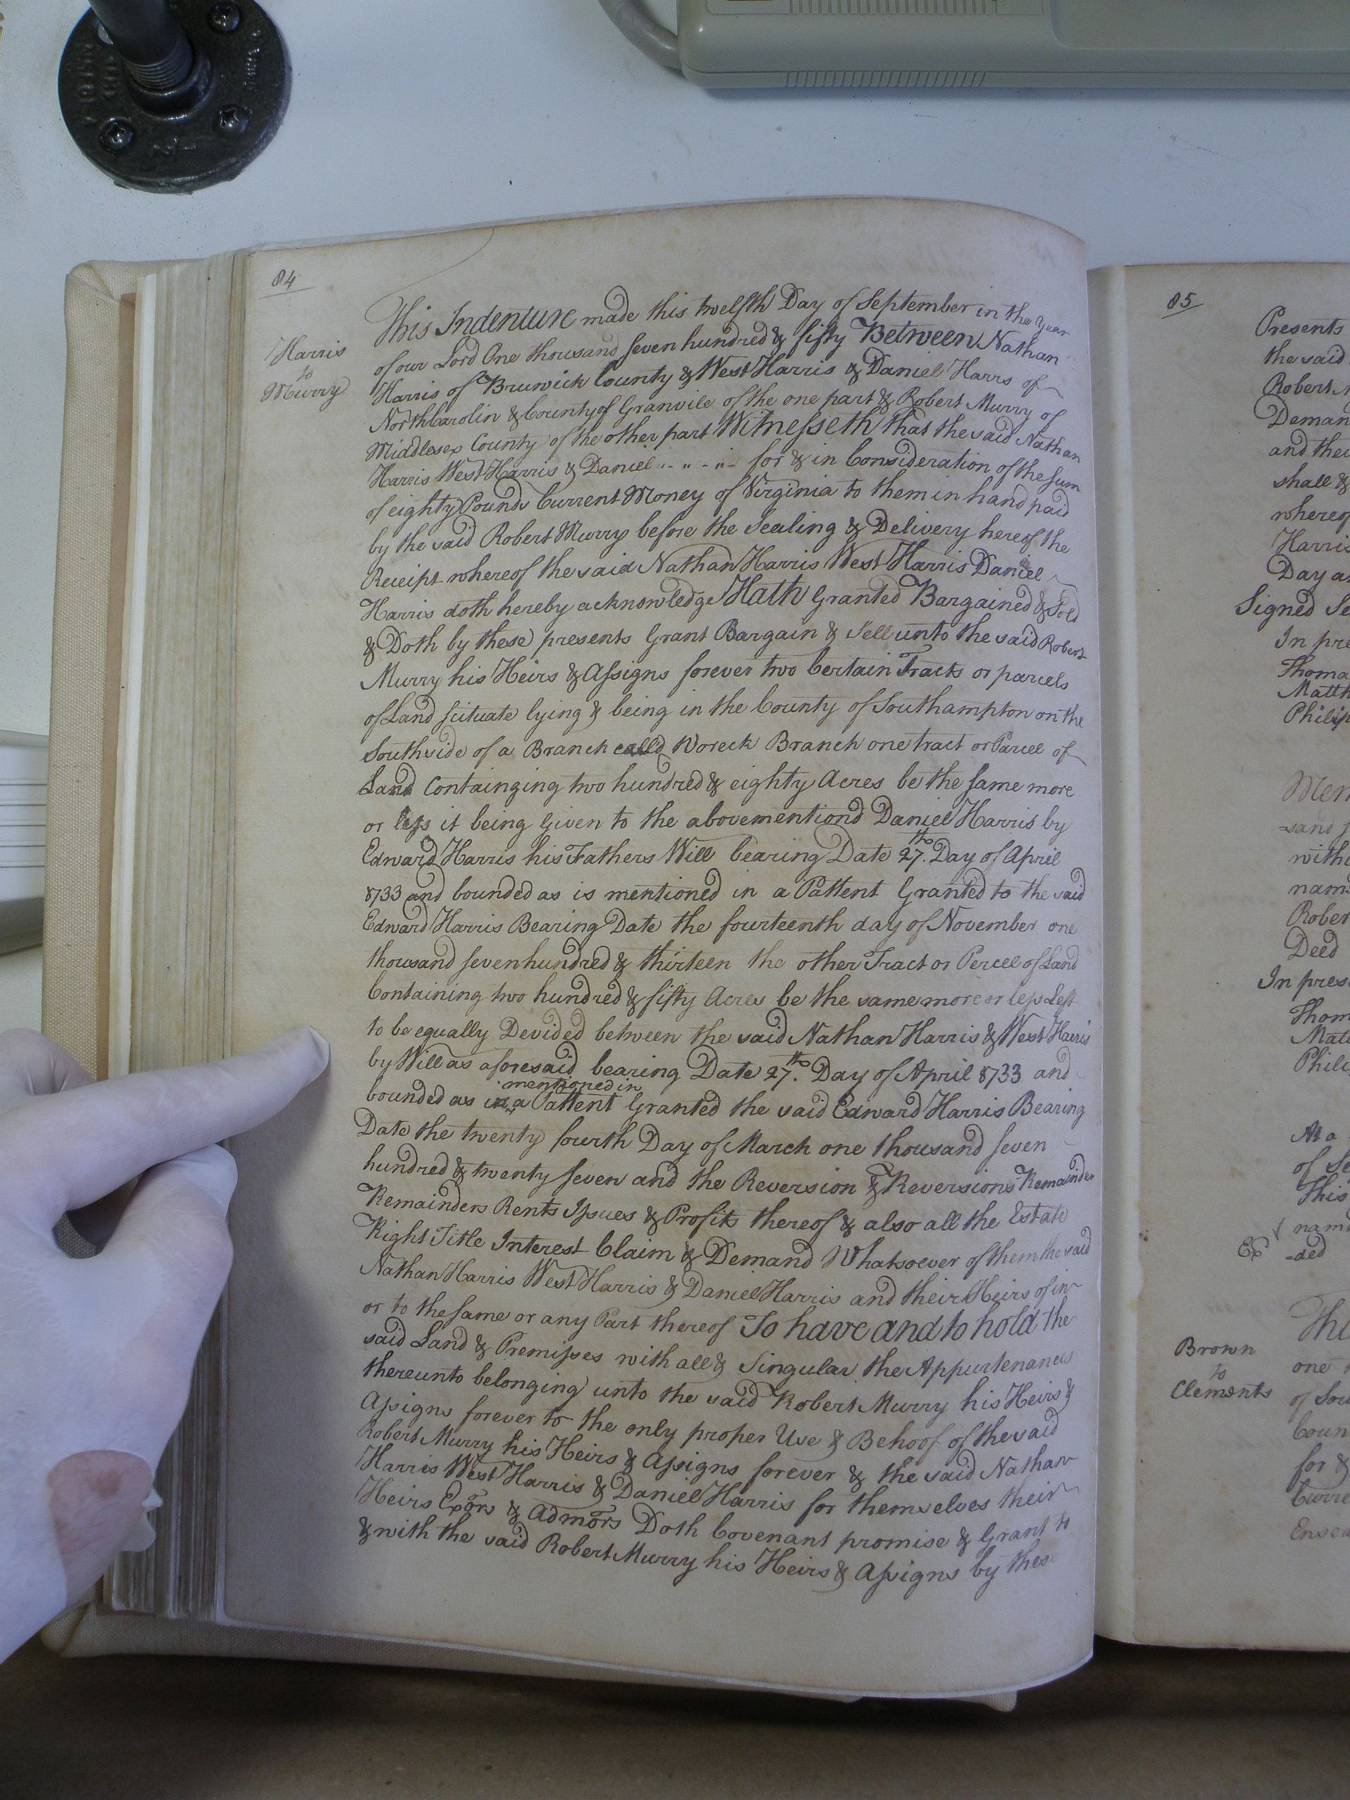 84
Harris
to
Murry
This Indenture made this twelfth Day of September in the Year
of our Lord One thousand seven hundred & fifty Between Nathan
Harris of Brunwick County & West Harris & Daniel Harrs of
North Carolin & County of Granvile of the one part & Robert Murry of
Middlesex County of the other part Witnesseth that the said Nathan
Harris West Harris & Daniel for & in Consideration of the sum
of eighty Pounds Current Money of Virginia to them in hand paid
by the said Robert Murry before the Sealing & Delivery hereof the
Receipt whereof the said Nathan Harris West Harris Daniel
Harris doth hereby acknowledge Hath Granted Bargained & Sold
& Doth by these presents Grant Bargain & Sell unto the said Robert
Murry his Heirs & Assigns forever two Certain Tracts or parcels
of Land scituate lying & being in the County of Southampton on the
Southside of a Branch calld Woreck Branch one tract or Parcel of
Land Containging two hundred & eighty Acres be the same more
or less it being Given to the abovementiond Daniel Harris by
Edward Harris his Fathers Will bearing Date 27.th Day of April
8733 and bounded as is mentioned in a Pattent Granted to the said
Edward Harris Bearing Date the fourteenth day of November one
thousand seven hundred & thirteen the other Tract or Percel of Land
Containing two hundred & fifty Acres be the same more or less Left
to be equally Devided between the said Nathan Harris & West Harris
by Will as aforesaid bearing Date 27.th Day of April 8733 and
mentioned in
bounded as in a Pattent Granted the said Edward Harris Bearing
Date the twenty fourth Day of March one thousand seven
hundred & twenty seven and the Reversion & Reversions Remainder
Remainders Rents Issues & Profits thereof & also all the Estate
Right Title Interest Claim & Demand Whatsoever of them the said
Nathan Harris West Harris & Daniel Harris and their Heirs of in
or to the same or any Part thereof To have and to hold the
said Land & Premisses with all & Singular the Appurtenances
thereunto belonging unto the said Robert Murry his Heirs &
Assigns forever to the only proper Use & Behoof of the said
Robert Murry his Heirs & Assigns forever & the said Nathan
Harris West Harris & Daniel Harris for themselves their
Heirs Exors & Admors Doth Covenant promise & Grant to
& with the said Robert Murry his Heirs & Assigns by these
85
Presents
the said
Robert
Deman
and thei
shall &
whereof
Harris
Day a
Signed Se
In pre
Thoma
Matth
Philip
Mem
sand
witho
nam
Rober
Deed
In prese
Thom
Mat
Phili
At a
of Se
This
nam
ded
Brown
to
Clements
Thi
one
of Sou
Coun
for &
Curre
Ensea